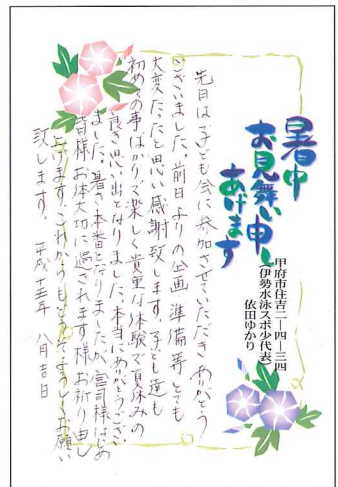 暑中
お見舞い申し
あげます
甲府市住吉二―四―三四
(伊勢水泳スポ少代表)
依田ゆかり
先日は子ども会に参加させていただきありがとう
ございました。前日よりの企画、準備等とても
大変だったと思い感謝致します。子ども達も
初めての事ばかりで楽しく貴重な体験で夏休みの
良き思い出となりました。本当にありがとうござい
ました。暑さ本番となりましたが、宮司様はじめ
皆様お体大切に過されます様お祈り申し
上げます。これからもどうぞよろしくお願い
致します。 平成十五年 八月吉日